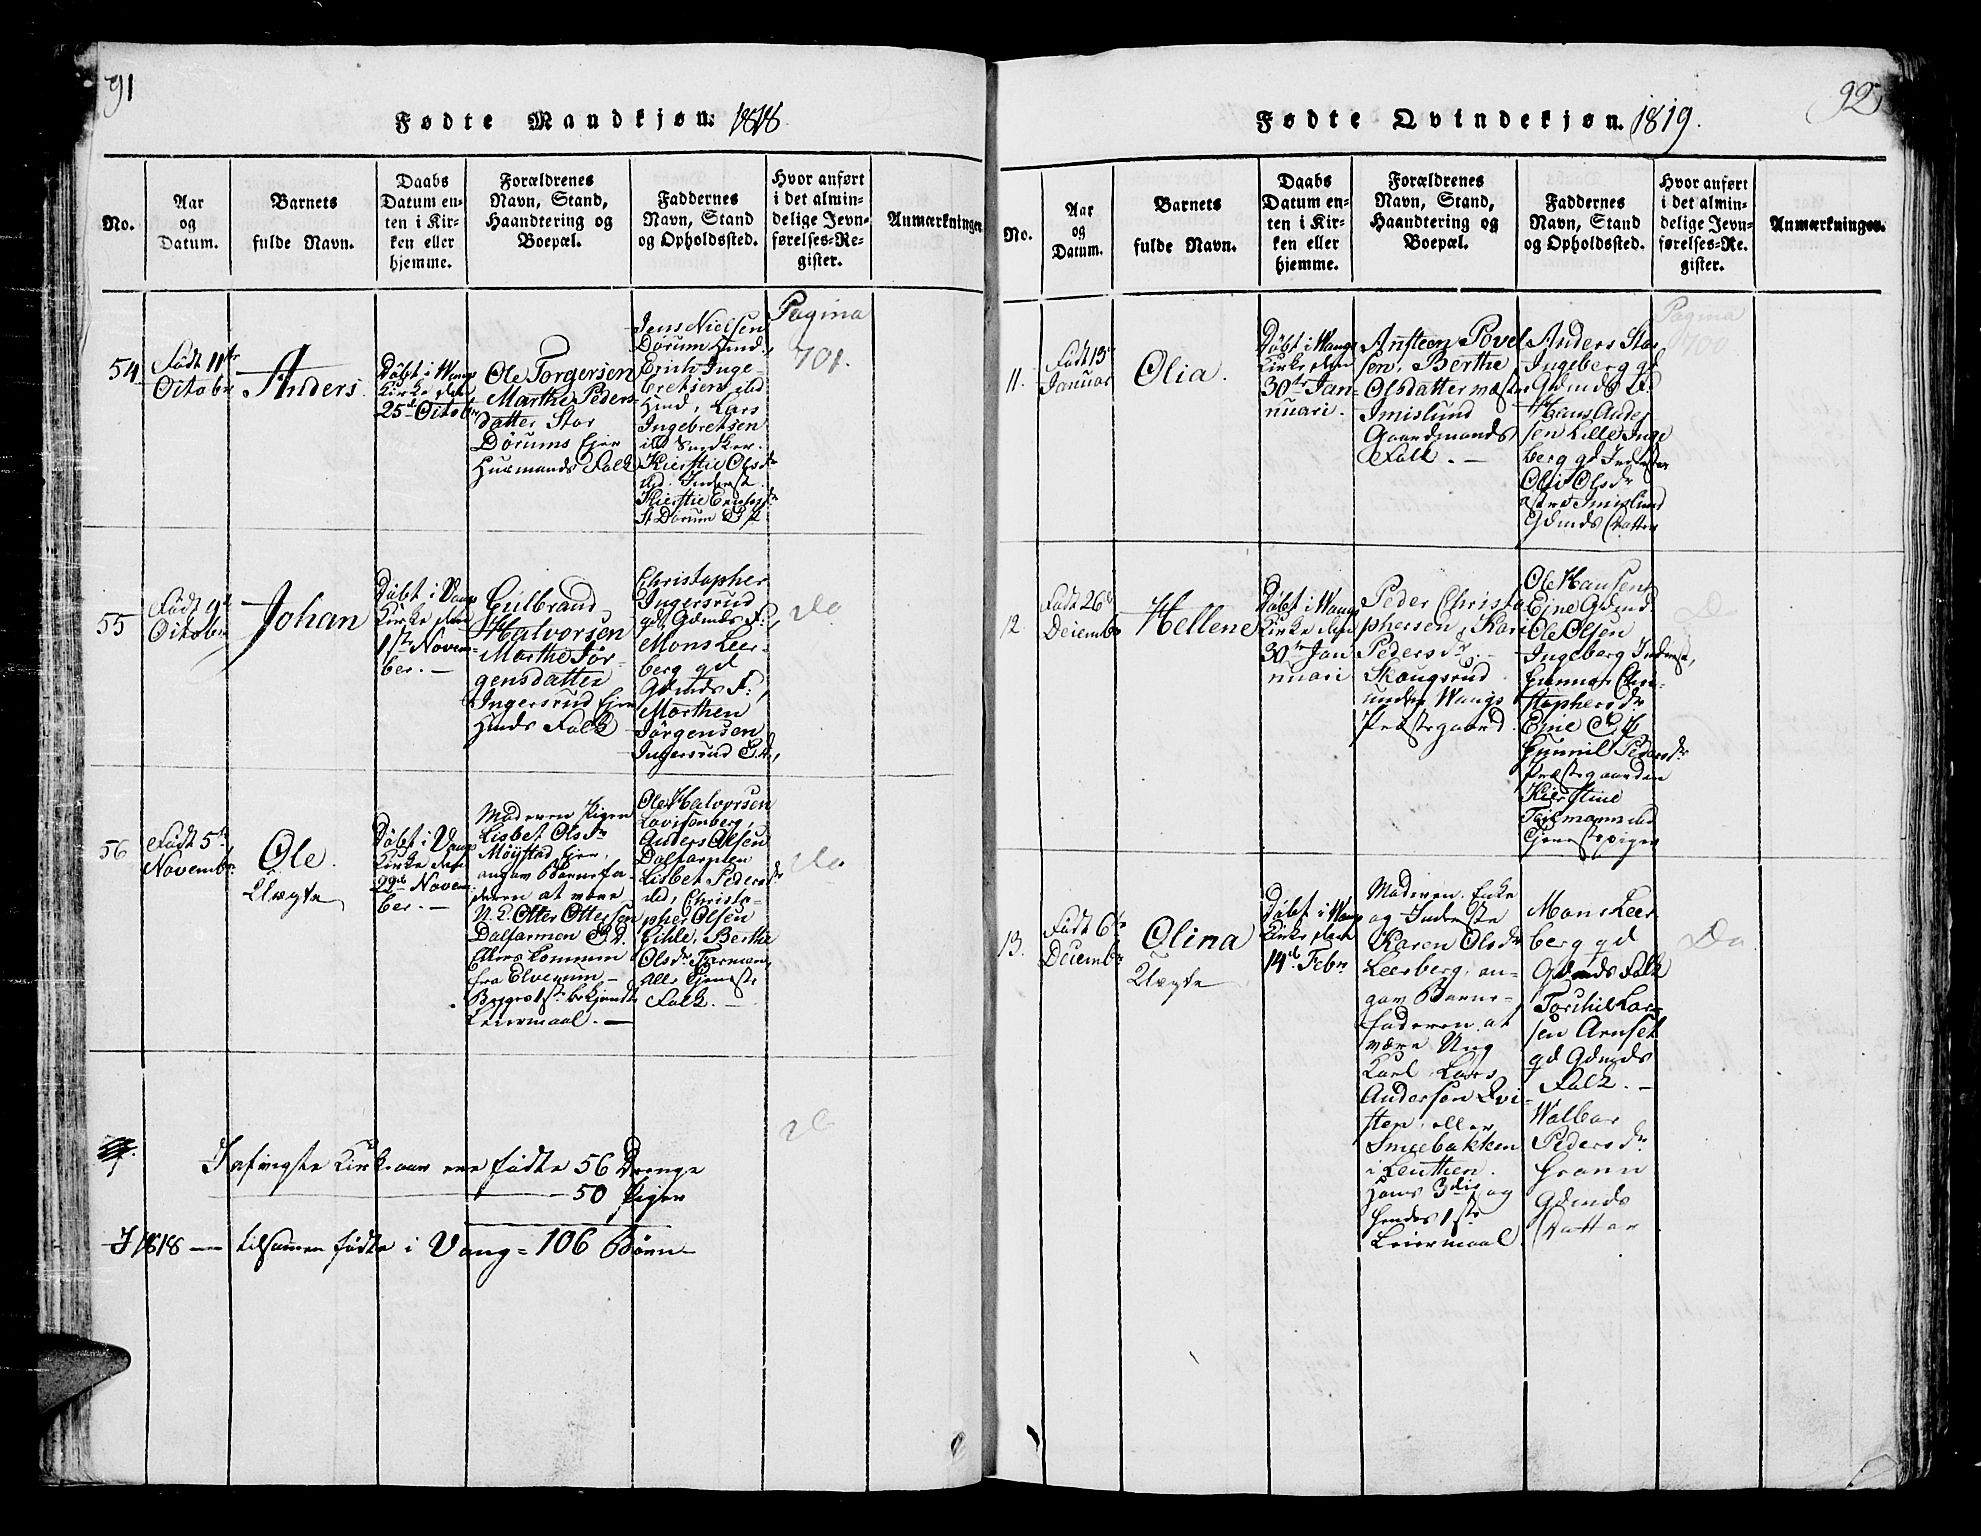 91
Fødte Mandkjøn: 1818.
No.
Aar
og
Datum.
Barnets
fulde Navn.
Daabs
Datum en-
ten i Kir-
ken eller
hjemme.
Forældrenes
Navn, Stand,
Haandtering og
Boepæl.
Faddernes
Navn, Stand
og Opholdssted.
Hvor anført
i det almin-
delige Jevn-
førelses-Re-
gister.
Anmærkninger.
54
Født 11te
Octobr
Anders.
Døbt i Wangs
Kirke den
25de Octobr
Ole Torgersen
Marthe Peders-
datter Stor
Dørums Ejer
Huusmands Folk
Jens Nielsen
Dørum Hmd.,
Erich Inge-
bretsen ibd
Hmd, Lars
Ingebretsen
ibd Snedker.
Kierstie Olsdr
ibd. Inderst.
Kierstie Ericksdr
St Dørum
Pagina
701.
55
Født 9de
Octobr
Johan
Døbt i Vangs
Kirke den
1ste Novem-
ber. —
Gulbrand
Halvorsen
Marthe Jør-
gensdatter
Ingersrud Ejer
Hmds Folk
Christopher
Ingersrud
gd, Gdmds F:,
Mons Leer-
berg gd
Gdmds F:,
Morthen
Jørgensen
Ingersrud
Do
56
Født 5te
Novembr.
Ole.
Uægte
Døbt i Vangs
Kirke den
22de Novem-
ber. —
Moderen Pigen
Lisbet Olsdr
Møystad Ejer,
angav Barnefa-
deren at være
Otter Ottersen
Dalfarmen
Ellers kommen
fra Elverum —
Begges 1ste bekjendte
Leiermaal. —
Ole Halvorsen
Lovisenberg,
Anders Olsen
Dalfarmen
Lisbet Pedersdr
ibd, Christo-
pher Olsen
Berthe
Olsdr Farmen,
alle tjeneste
Folk. —
Do
Do
I afvigte Kirkeaar ere fødte 56 Drenge
— 50 Piger
I 1818 — tilsammen fødte i Vang = 106 Børn —
92
Fødte Qvindekjøn. 1819.
No.
Aar
og
Datum.
Barnets
fulde Navn.
Daabs
Datum en-
ten i Kir-
ken eller
hjemme.
Forældrenes
Navn, Stand,
Haandtering og
Boepæl.
Faddernes
Navn, Stand
og Opholdssted.
Hvor anført
i det almin-
delige Jevn-
førelses-Re-
gister.
Anmærkninger.
11.
Født 13de
Januar
Olia.
Døbt i Wangs
Kirke den
30te Jan-
nuari.
Ansteen Povel-
sen, Berthe
Olsdatter
Imislund
Gaardmands
Folk. —
Anders Stor
Ingeberg gd
Gdmds F.
Hans Ander-
sen Lille Inge
berg gd Inderster
Olsdr
østre Imislund
Gdmds Datter
Pagina
700
12.
Født 26de
Decembr
Hellene
Døbt i Wangs
Kirke den
30te Jan
nuari
Peder Christo
phersen, Kari
Pedersdr. —
Skougsrud
under Wangs
Præstegaard.
Ole Hansen
Ejne Gdmd
Ole Olsen
Ingeberg Inderst,
Gunnor Chri-
stophersdr
Ejne
Gunnil Pedersdr
Præstegaarden
Kierstine
ibd
Tjenestepiger
Do
13.
Født 6te
Decembr
Olina
Uægte
Døbt i Wangs
Kirke den
14de Febr
Moderen. Enke
og Inderste
Karen Olsdr
Leerberg, an-
gav Barne-
faderen at
være Ung
Karl Lars
Andersen Qvi-
sten eller
Smeebakken
i Leuthen.
Hans 3die og
hendes 1ste
Leiermaal.
Mons Leer
berg gd
Gdmds Folk
Torchil Lar-
sen Arnset
gd Gdmds
Folk. —
Walbor
Pedersdr
Gdmds
Datter
Do